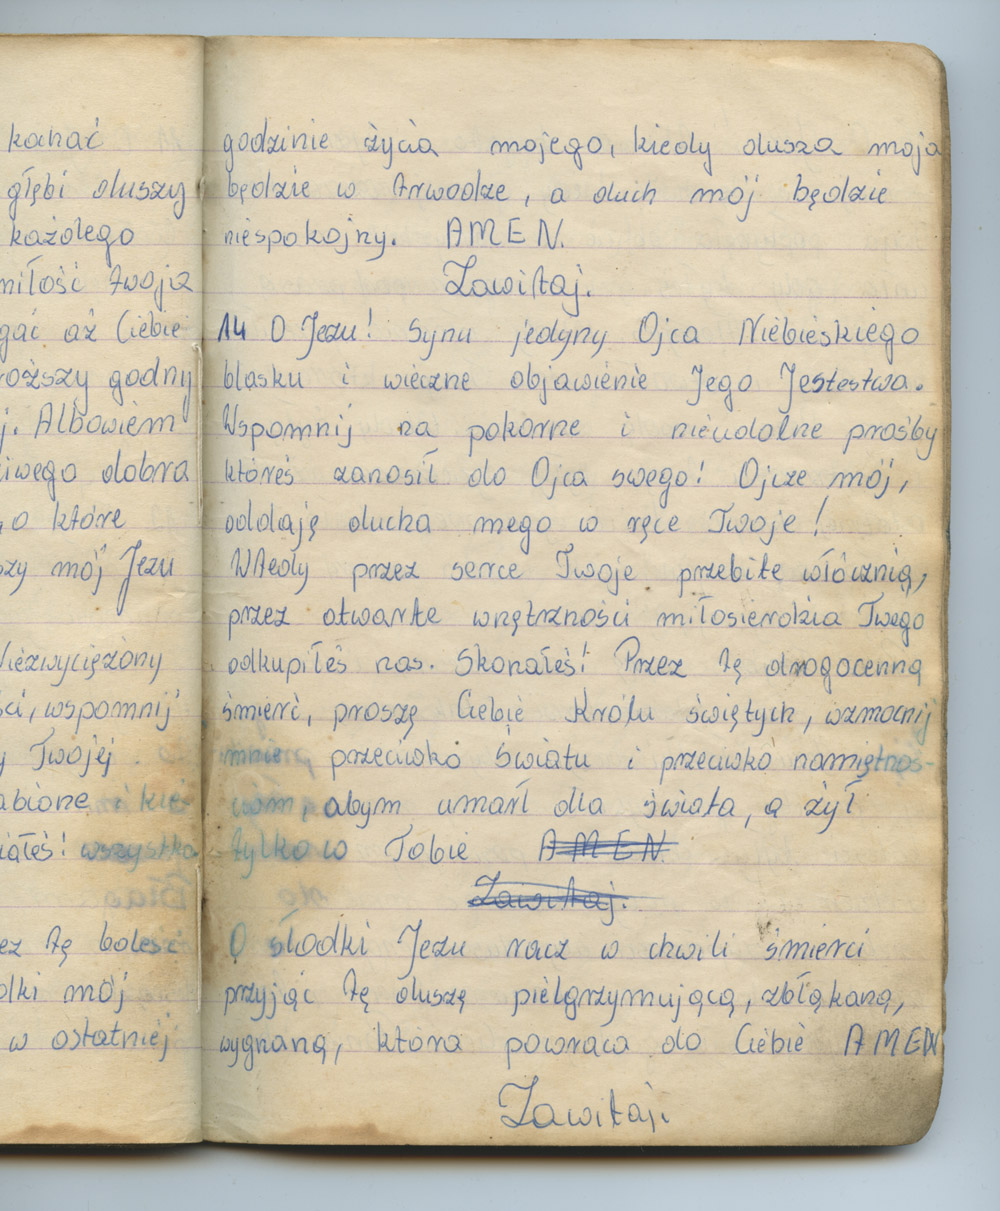 kanać
głębi duszy
każdego
miłość twoja
gać aż Ciebie
roższy godny
j. Albowiem
iwego dobra
, o które
szy mój Jezu
Niezwyciężony
ści, wspomnij
y Twojej.
abione i kie-
iałeś! wszystko
ez tę boleść
dki mój
w ostatniej
godzinie życia mojego, kiedy dusza moja
będzie w trwodze, a duch mój będzie
niespokojny. AMEN.
Zawitaj.
14 O Jezu! Synu jedyny Ojca Niebieskiego
blasku i wieczne objawienie Jego Jestestwa.
Wspomnij na pokorne i nieudolne prośby
któreś zanosił do Ojca swego! Ojcze mój,
oddaję ducha mego w ręce Twoje!
Wtedy przez serce Twoje przebite włócznią,
przez otwarte wnętrzności miłosierdzia Twego
odkupiłeś nas. Skonałeś! Przez tę drogocenną
śmierć, proszę Ciebie Królu świętych, wzmocnij
mnie przeciwko światu i przeciwko namiętnoś-
ciom, abym umarł dla świata, a żył
tylko w Tobie AMEN
Zawitaj.
O słodki Jezu racz w chwili śmierci
przyjąć tę duszę pielgrzymującą, zbłąkaną,
wygnaną, która powraca do Ciebie AMEN
Zawitaj.